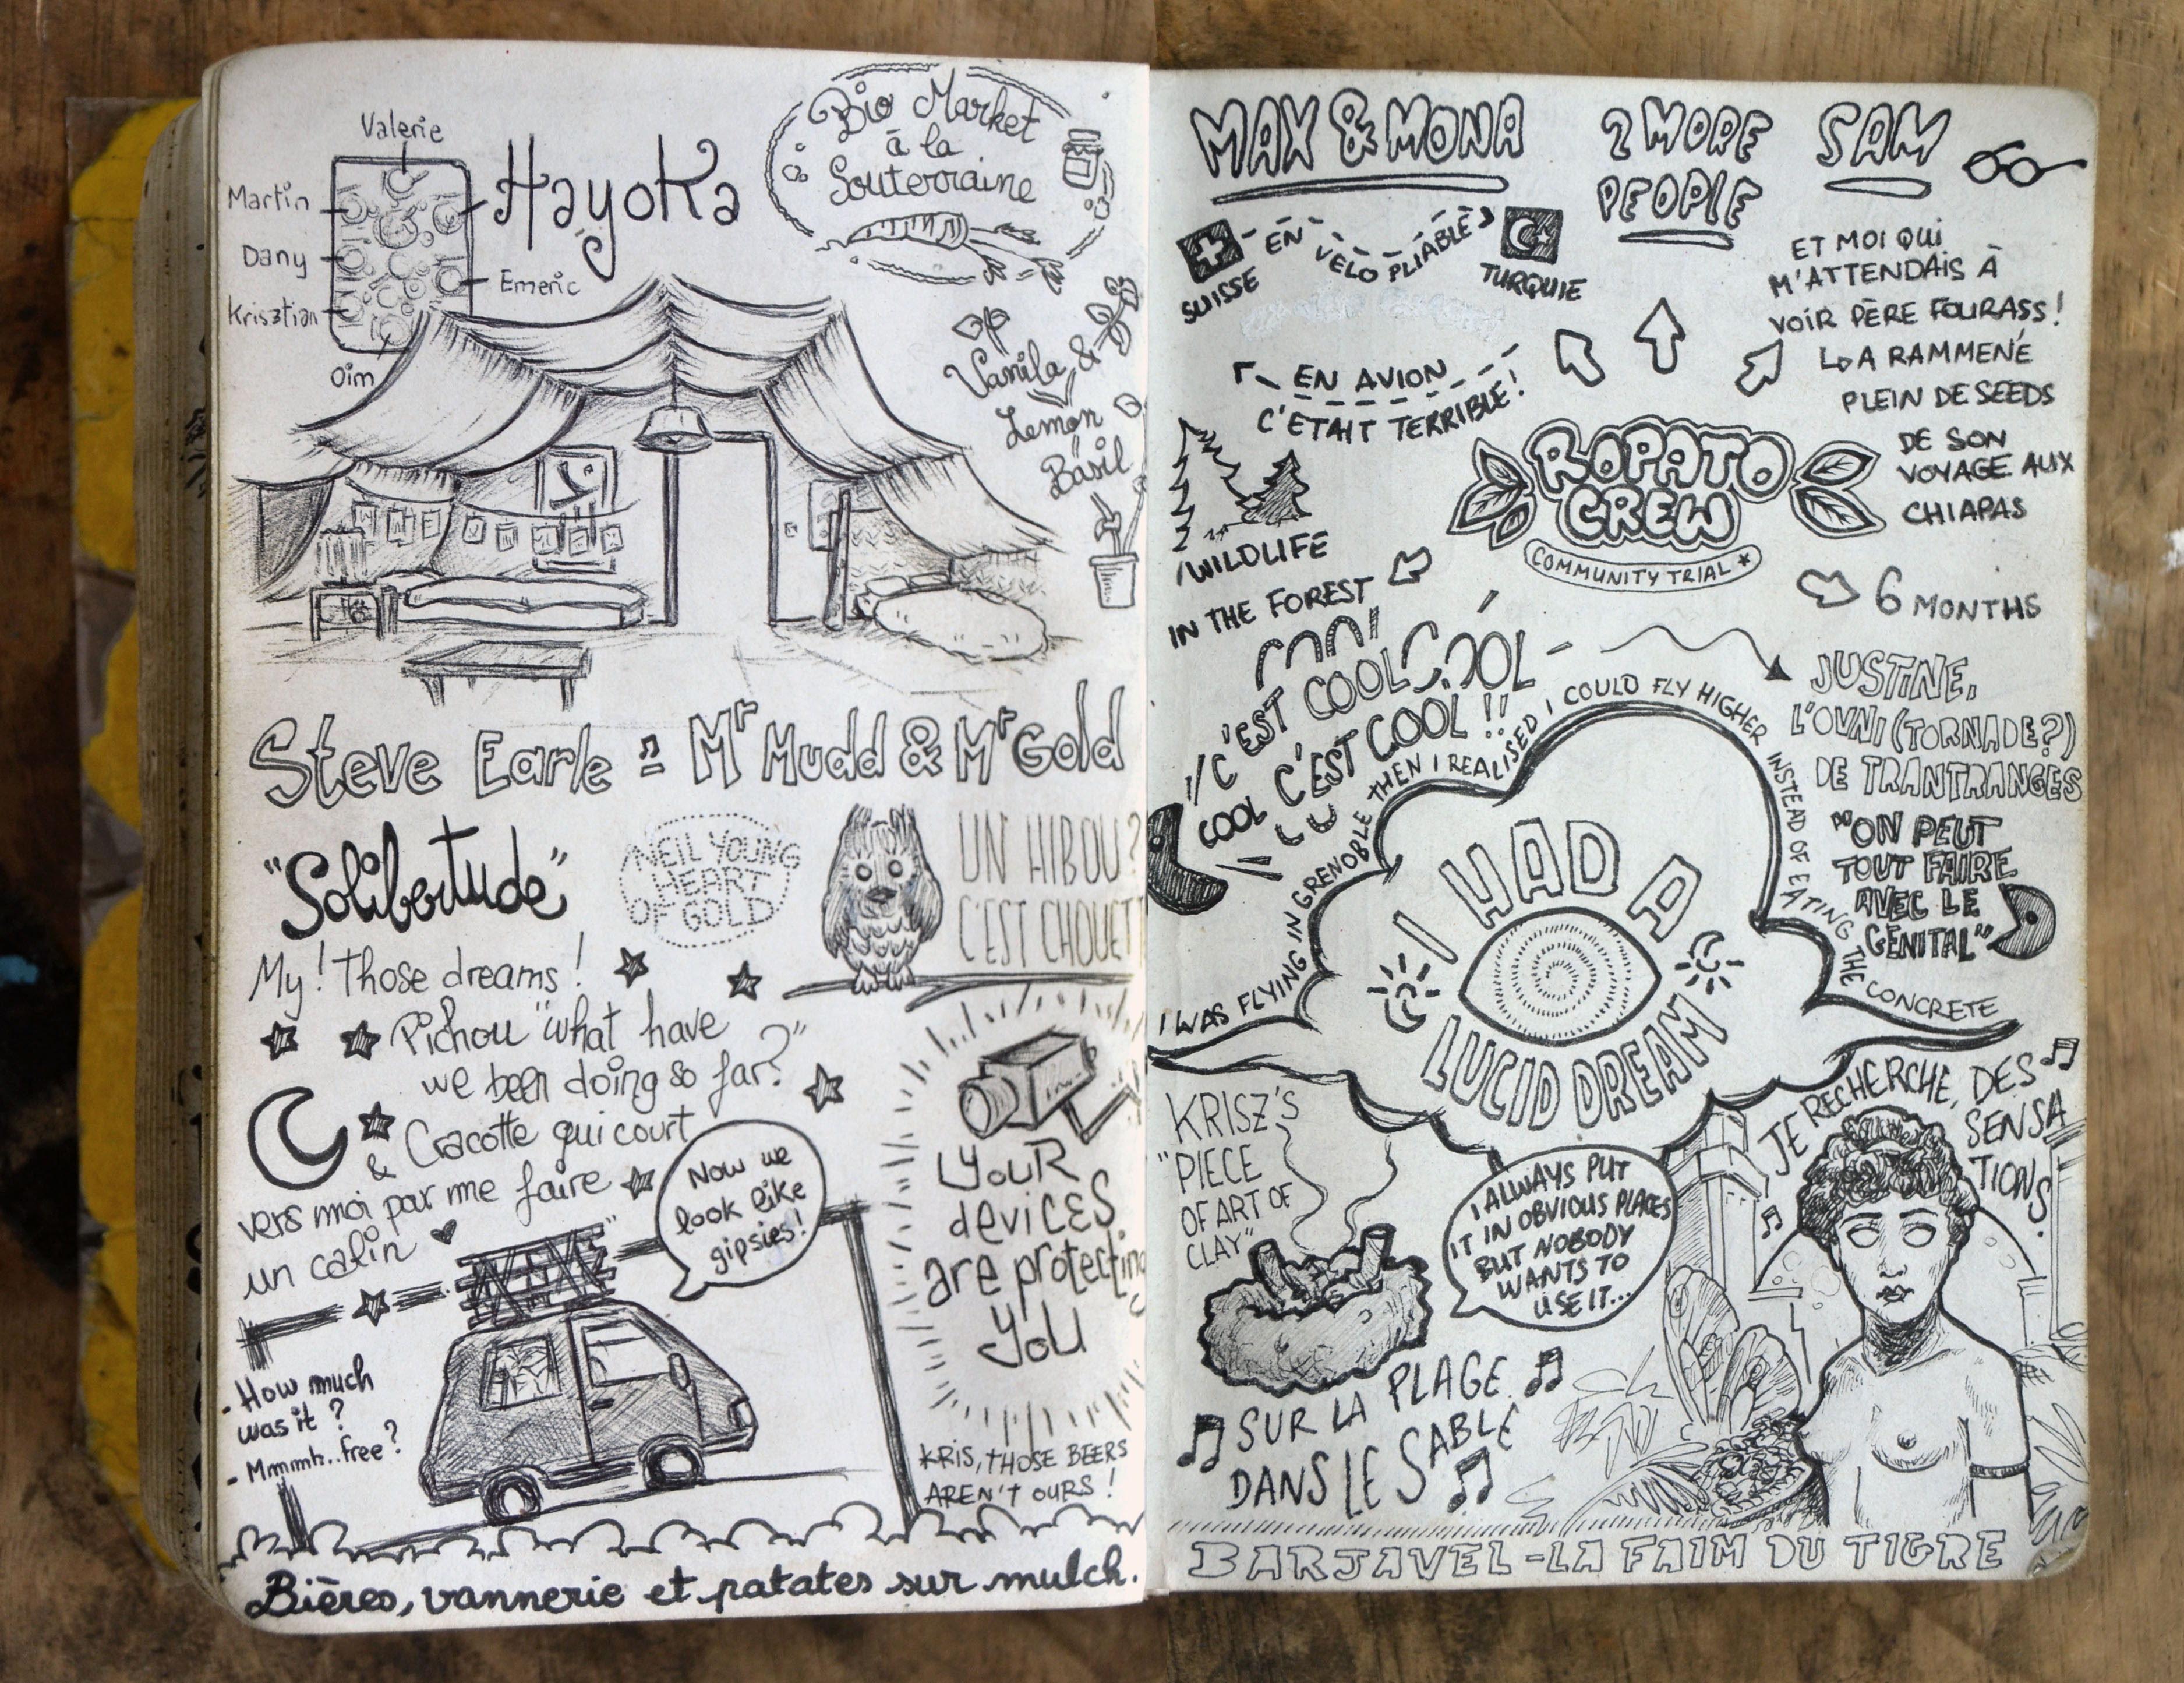 Valerie
Martin
Dany
Krisztian
Oim
Emeric
Hayoka
Bio Market
à la
Souterraine
Vanila &
Lemon
Basil
Steve Earle = Mr Mudd & Mr Gold
"Solibertude"
NEIL YOUNG
HEART
OF GOLD
UN HIBOU?
C'EST CHOUET
My! Those dreams!
Pichou "what have
we been doing so far?"
& Cracotte qui court
vers moi par me faire
un calin
Now we
look like
gipsies!
YouR
deviCES
are protecting
YoU
- How much
was it?
- Mmmh..free?
KRIS, THOSE BEERS
AREN'T OURS!
Bières, vannerie et patates sur mulch.
MAX & MONA
SUISSE
EN VELO PLIABLE
TURQUIE
EN AVION
C'ETAIT TERRIBLE!
2 MORE
PEOPLE
SAM
ET MOI QUI
M'ATTENDAIS À
VOIR PÈRE FOURASS!
↳ A RAMMENÉ
PLEIN DE SEEDS
DE SON
VOYAGE AUX
CHIAPAS
ROPATO
CREW
COMMUNITY TRIAL *
WILDLIFE
IN THE FOREST
6 MONTHS
C'EST COOL COOL
COOL C'EST COOL!!
JUSTINE,
L'OVNI (TORNADE?)
DE TRANTRANGES
"ON PEUT
TOUT FAIRE
AVEC LE
GENITAL"
I WAS FLYING IN GRENOBLE THEN I REALISED I COULD FLY HIGHER INSTEAD OF EATING THE CONCRETE
I HAD A
LUCID DREAM
KRISZ'S
"PIECE
OF ART OF
CLAY"
I ALWAYS PUT
IT IN OBVIOUS PLACES
BUT NOBODY
WANTS TO
USE IT...
JE RECHERCHE, DES
SENSA
TIONS.
SUR LA PLAGE
DANS LE SABLE
BARJAVEL - LA FAIM DU TIGRE